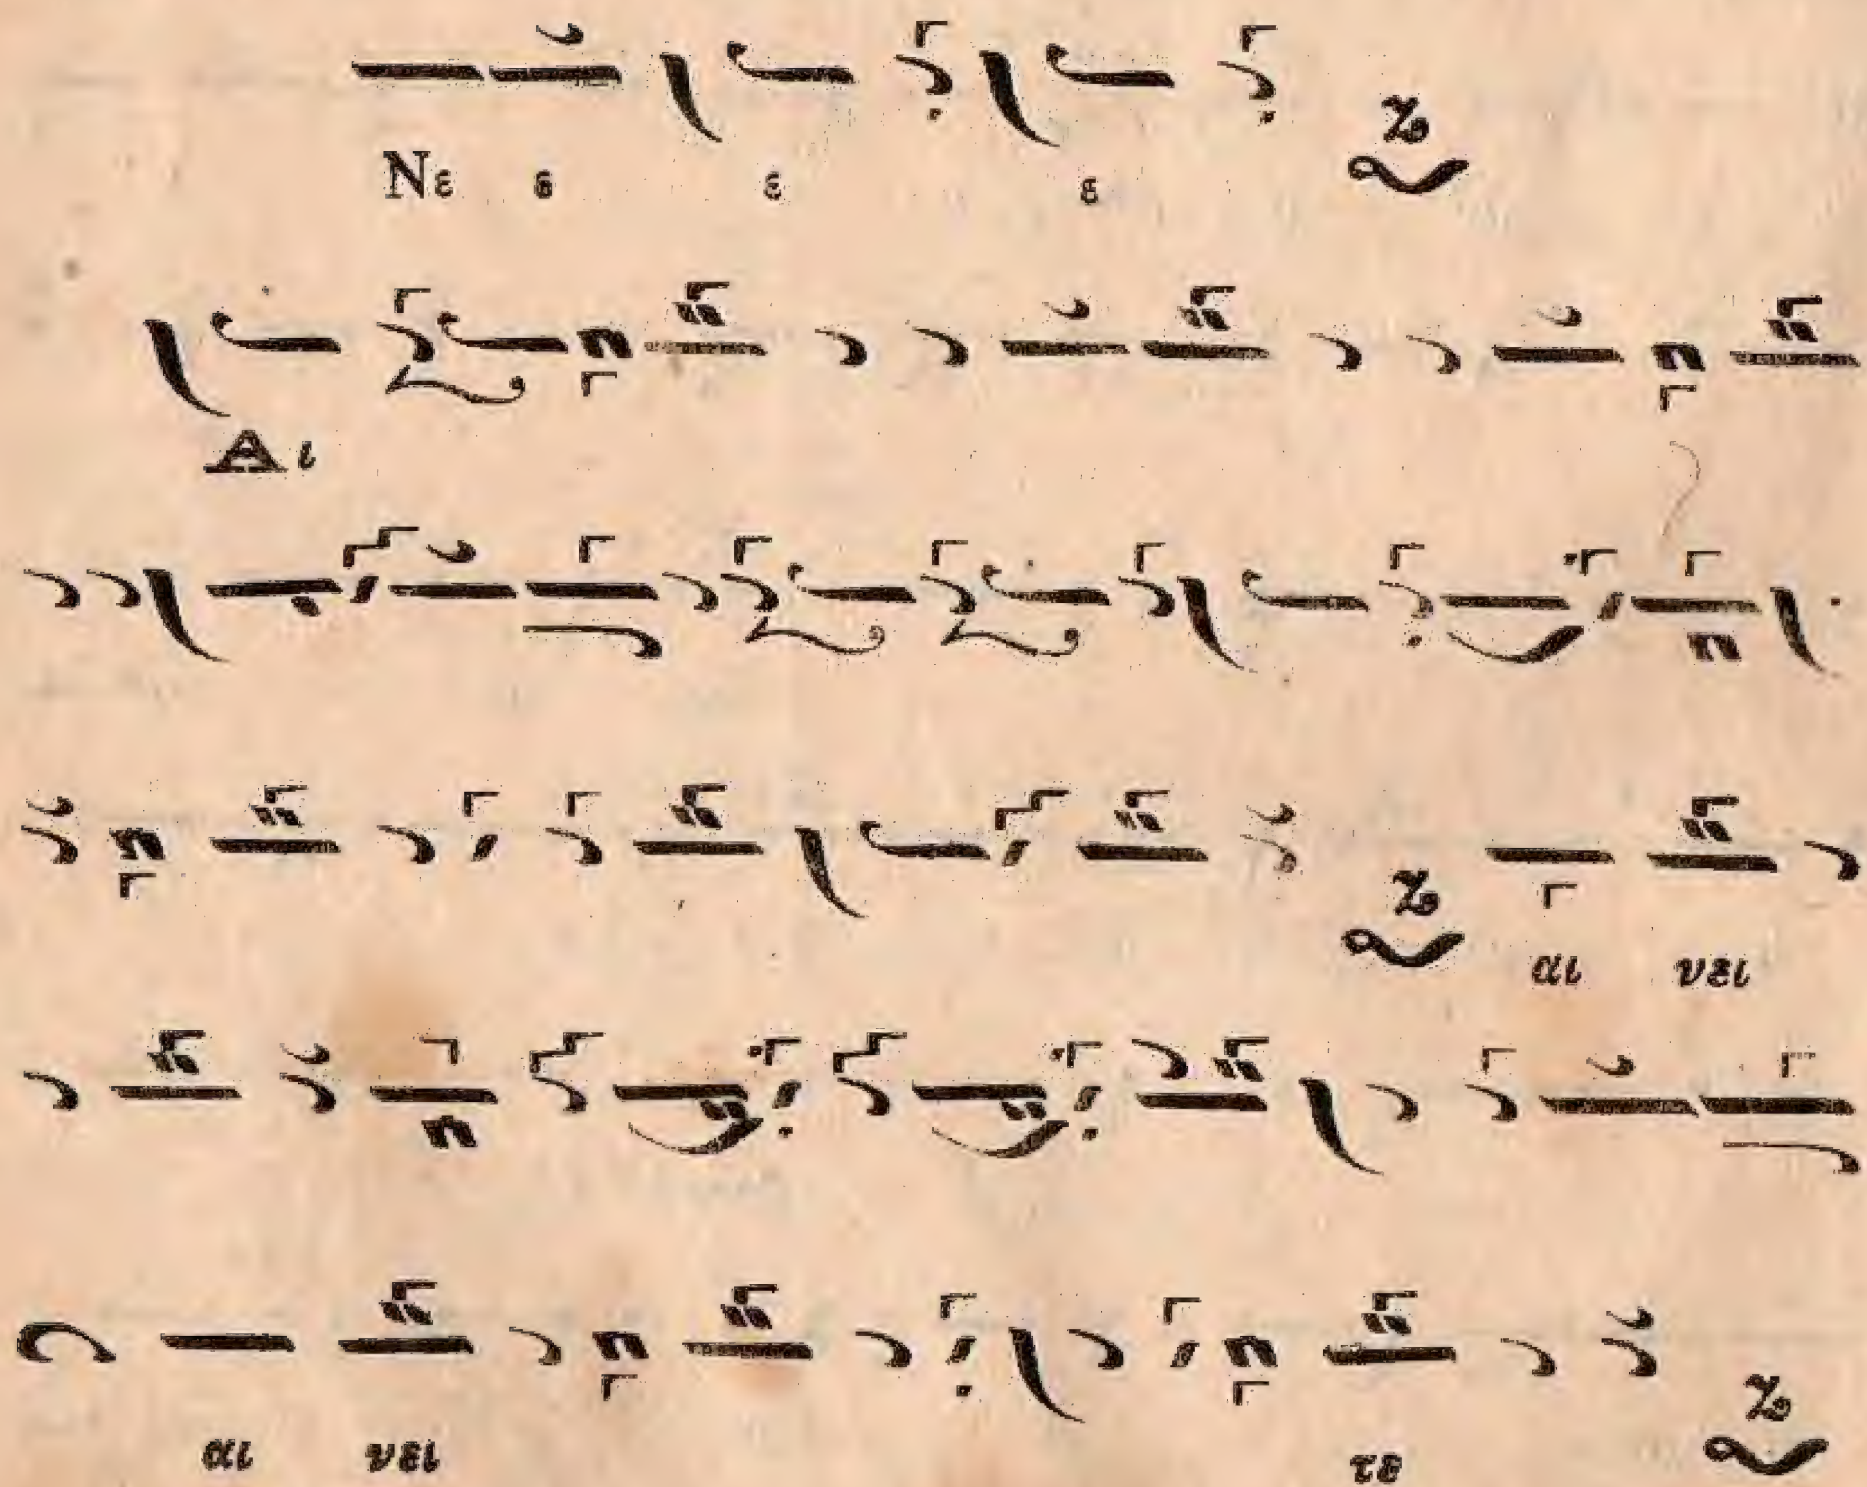 Νε ε ε ε
Αι
αι νει
αι νει τε